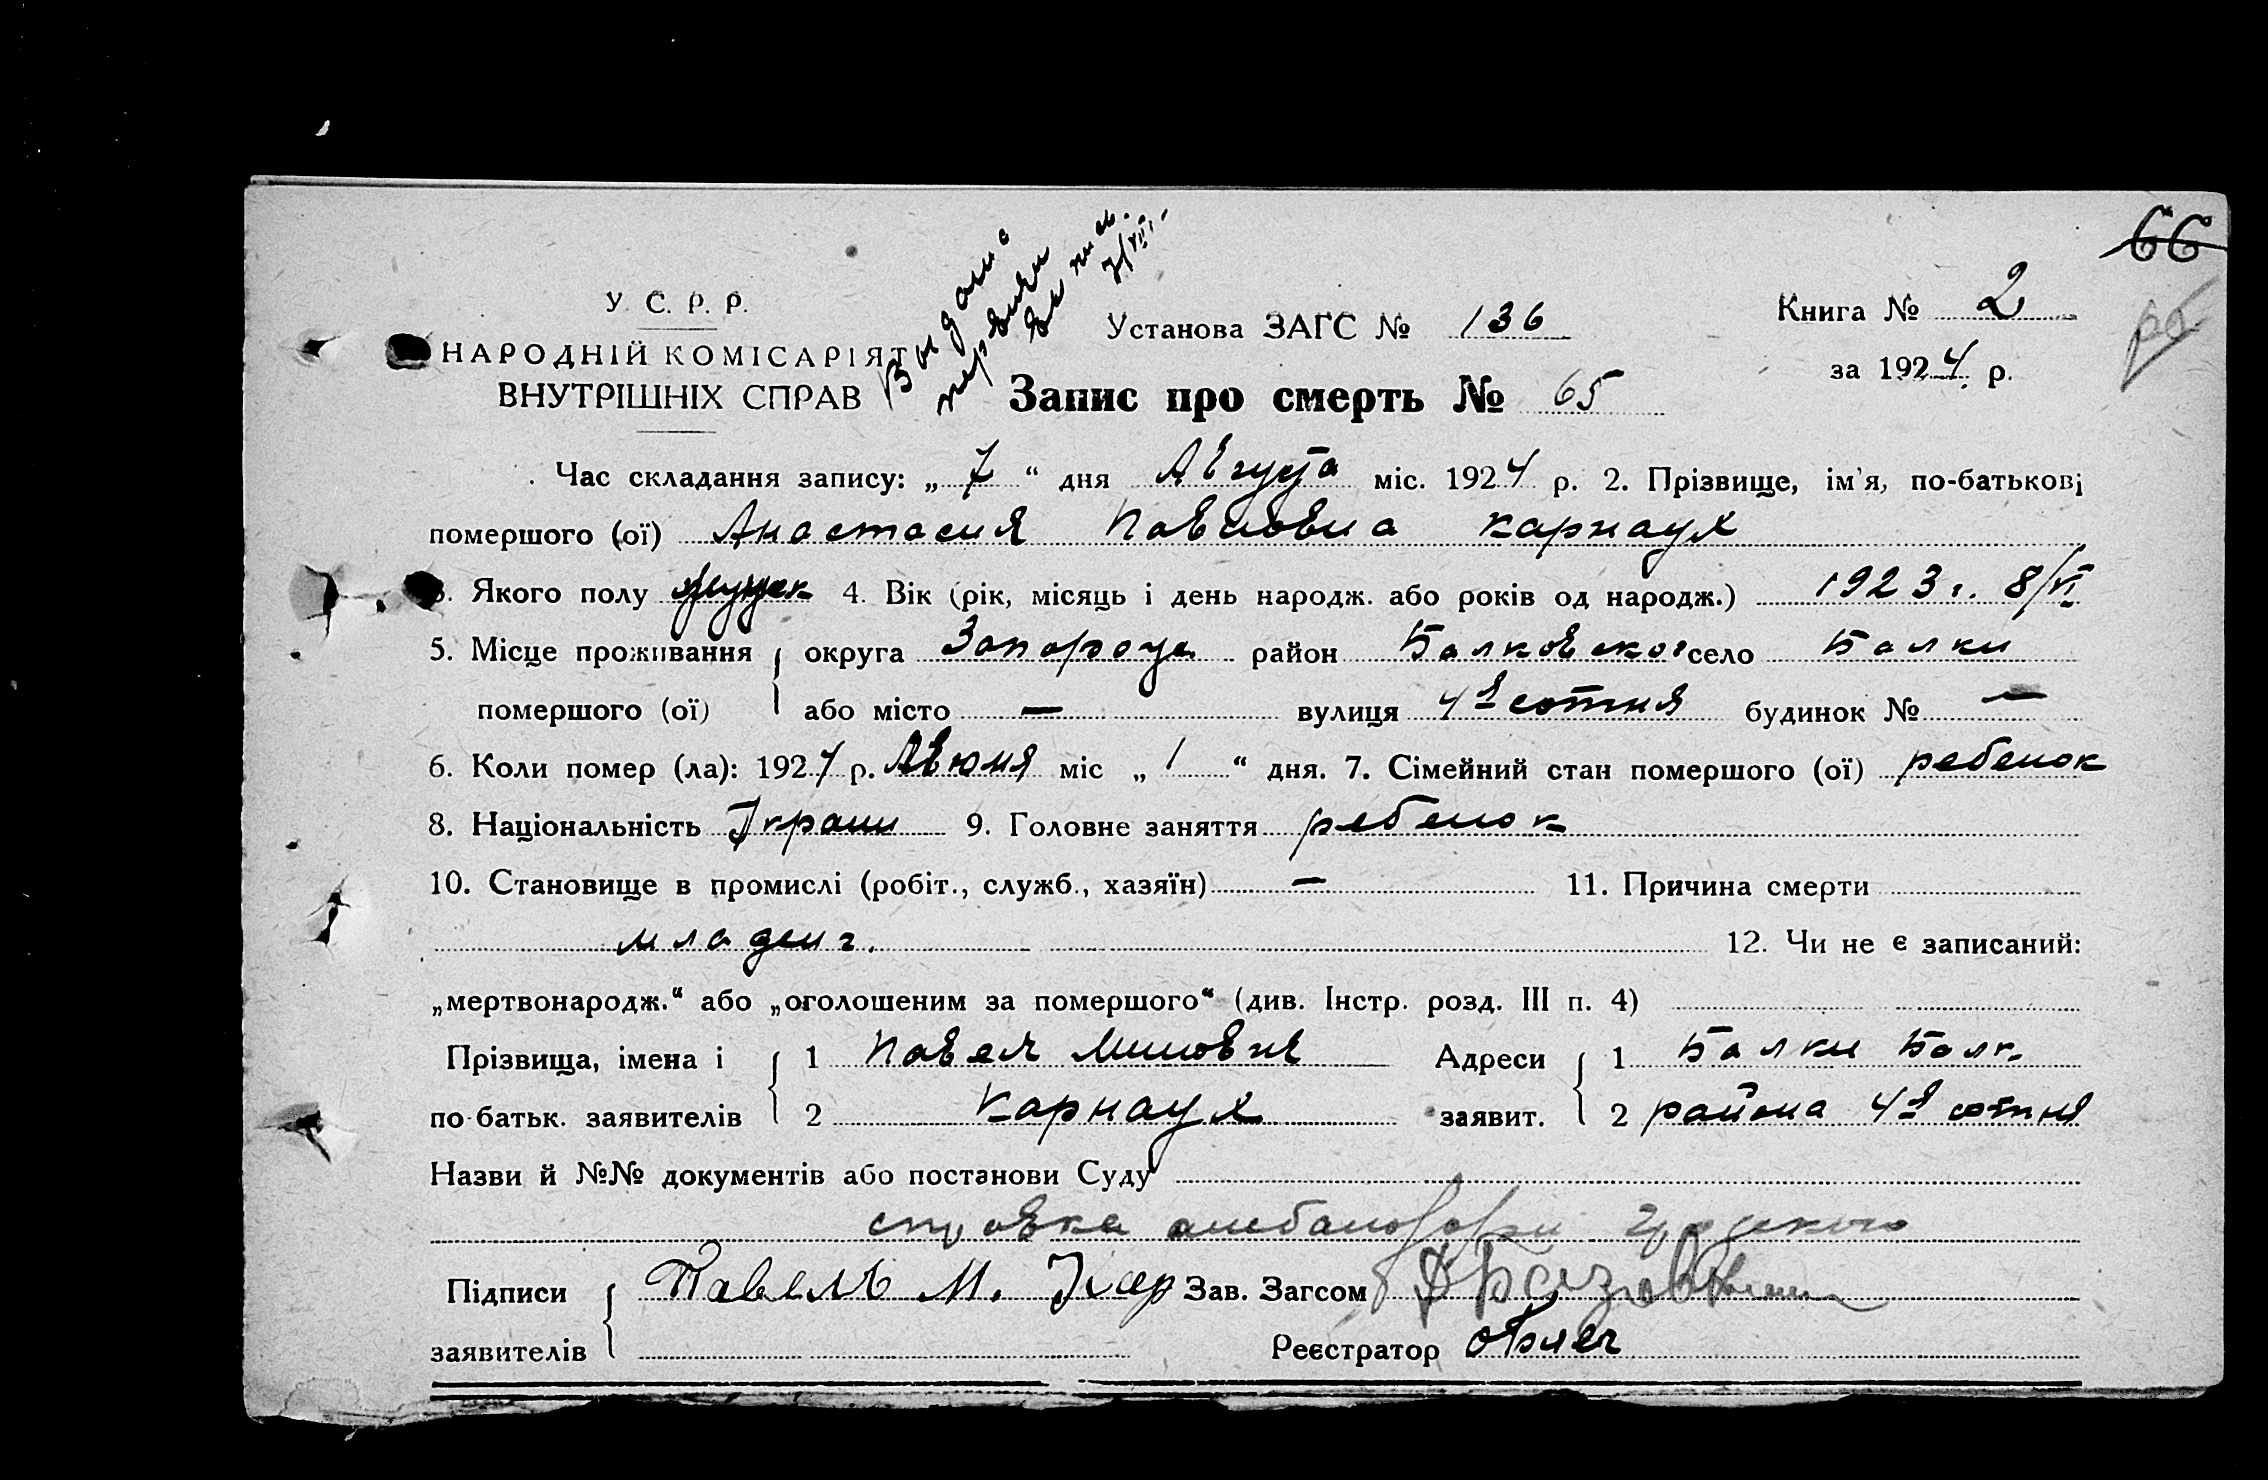 66
У. С. Р. Р.
НАРОДНІЙ КОМІСАРІЯТ
ВНУТРІШНІХ СПРАВ
Видано
первич
выпись
7/VIII
Установа ЗАГС № 136
Книга № 2
за 1924 р.
Запис про смерть № 65
. Час складання запису: „ 7 “ дня Августа міс. 1924 р. 2. Прізвище, ім'я, по-батькові
помершого (ої) Анастасия Павловна Карнаух
3. Якого полу 4. Вік (рік, місяць і день народж. або років од народж.) 1923 г. 8/VI
5. Місце проживання округа Запорож район Балковского село Балки
помершого (ої) або місто — вулиця 4я сотня будинок № —
6. Коли помер (ла): 1924 р. міс „ 1 “ дня. 7. Сімейний стан помершого (ої) ребенок
8. Національність Украин 9. Головне заняття ребенок
10. Становище в промислі (робіт., служб., хазяїн) — 11. Причина смерти
младенч.
12. Чи не є записаний:
„мертвонародж.“ або „оголошеним за помершого“ (див. Інстр. розд. III п. 4)
Прізвища, імена і 1 Павел Адреси 1 Балки Балк.
по-батьк. заявителів 2 Карнаух заявит. 2 района 4я сотня
Назви й №№ документів або постанови Суду
справка
Підписи Павелъ М. Кар Зав. Загсом
заявителів Реєстратор